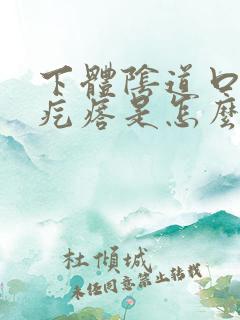 下體陰道口
疙瘩是怎麼
杜傾城
未任同意禁止转载